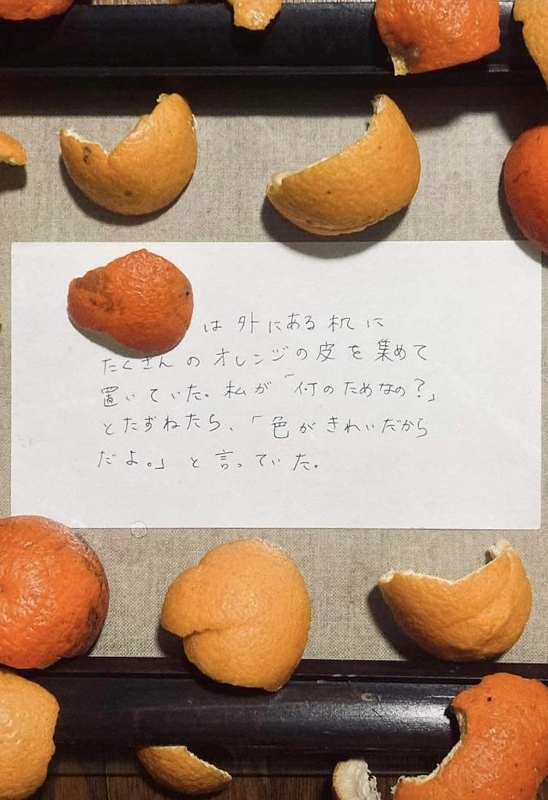 は外にある机に
たくさんのオレンジの皮を集めて
置いていた。私が「何のためなの？」
とたずねたら、「色がきれいだから
だよ。」と言っていた。